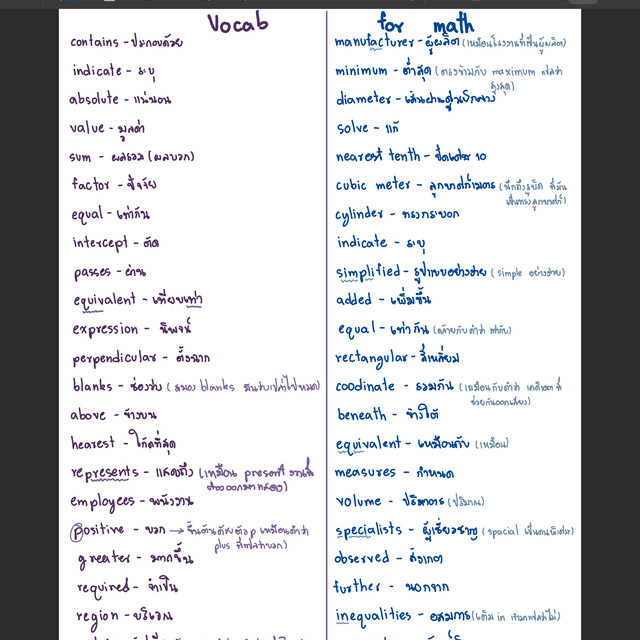 Vocab for math
contains - ประกอบด้วย
indicate - ระบุ
absolute - แน่นอน
value - มูลค่า
sum - ผลรวม (ผลบวก)
factor - ปัจจัย
equal - เท่ากัน
intercept - ตัด
passes - ผ่าน
equivalent - เทียบเท่า
expression - นิพจน์
perpendicular - ตั้งฉาก
blanks - ช่องว่าง
above - ข้างบน
hearest - ใกล้ที่สุด
represents - แสดงถึง (เหมือน present
employees - พนักงาน
positive - บวก →
plus
greater - มากขึ้น
required - จำเป็น
region - บริเวณ
manufacturer - ผู้ผลิต (เหมือนโรงงานที่เป็นผู้ผลิต)
minimum - ต่ำสุด (ตรงข้ามกับ maximum ที่แปลว่า
สูงสุด)
diameter - เส้นผ่านศูนย์กลาง
solve - แก้
nearest tenth -
cubic meter - ลูกบาศก์เมตร
cylinder - ทรงกระบอก
indicate - ระบุ
simplified - รูปแบบอย่างง่าย (simple อย่างง่าย)
added - เพิ่มขึ้น
equal - เท่ากัน
rectangular - สี่เหลี่ยม
coodinate -
beneath - ข้างใต้
equivalent - เหมือนกับ (เหมือน)
measures - กำหนด
volume - ปริมาตร (ปริมาณ)
specialists - ผู้เชี่ยวชาญ (spacial
observed - สังเกต
further - นอกจาก
inequalities - อสมการ